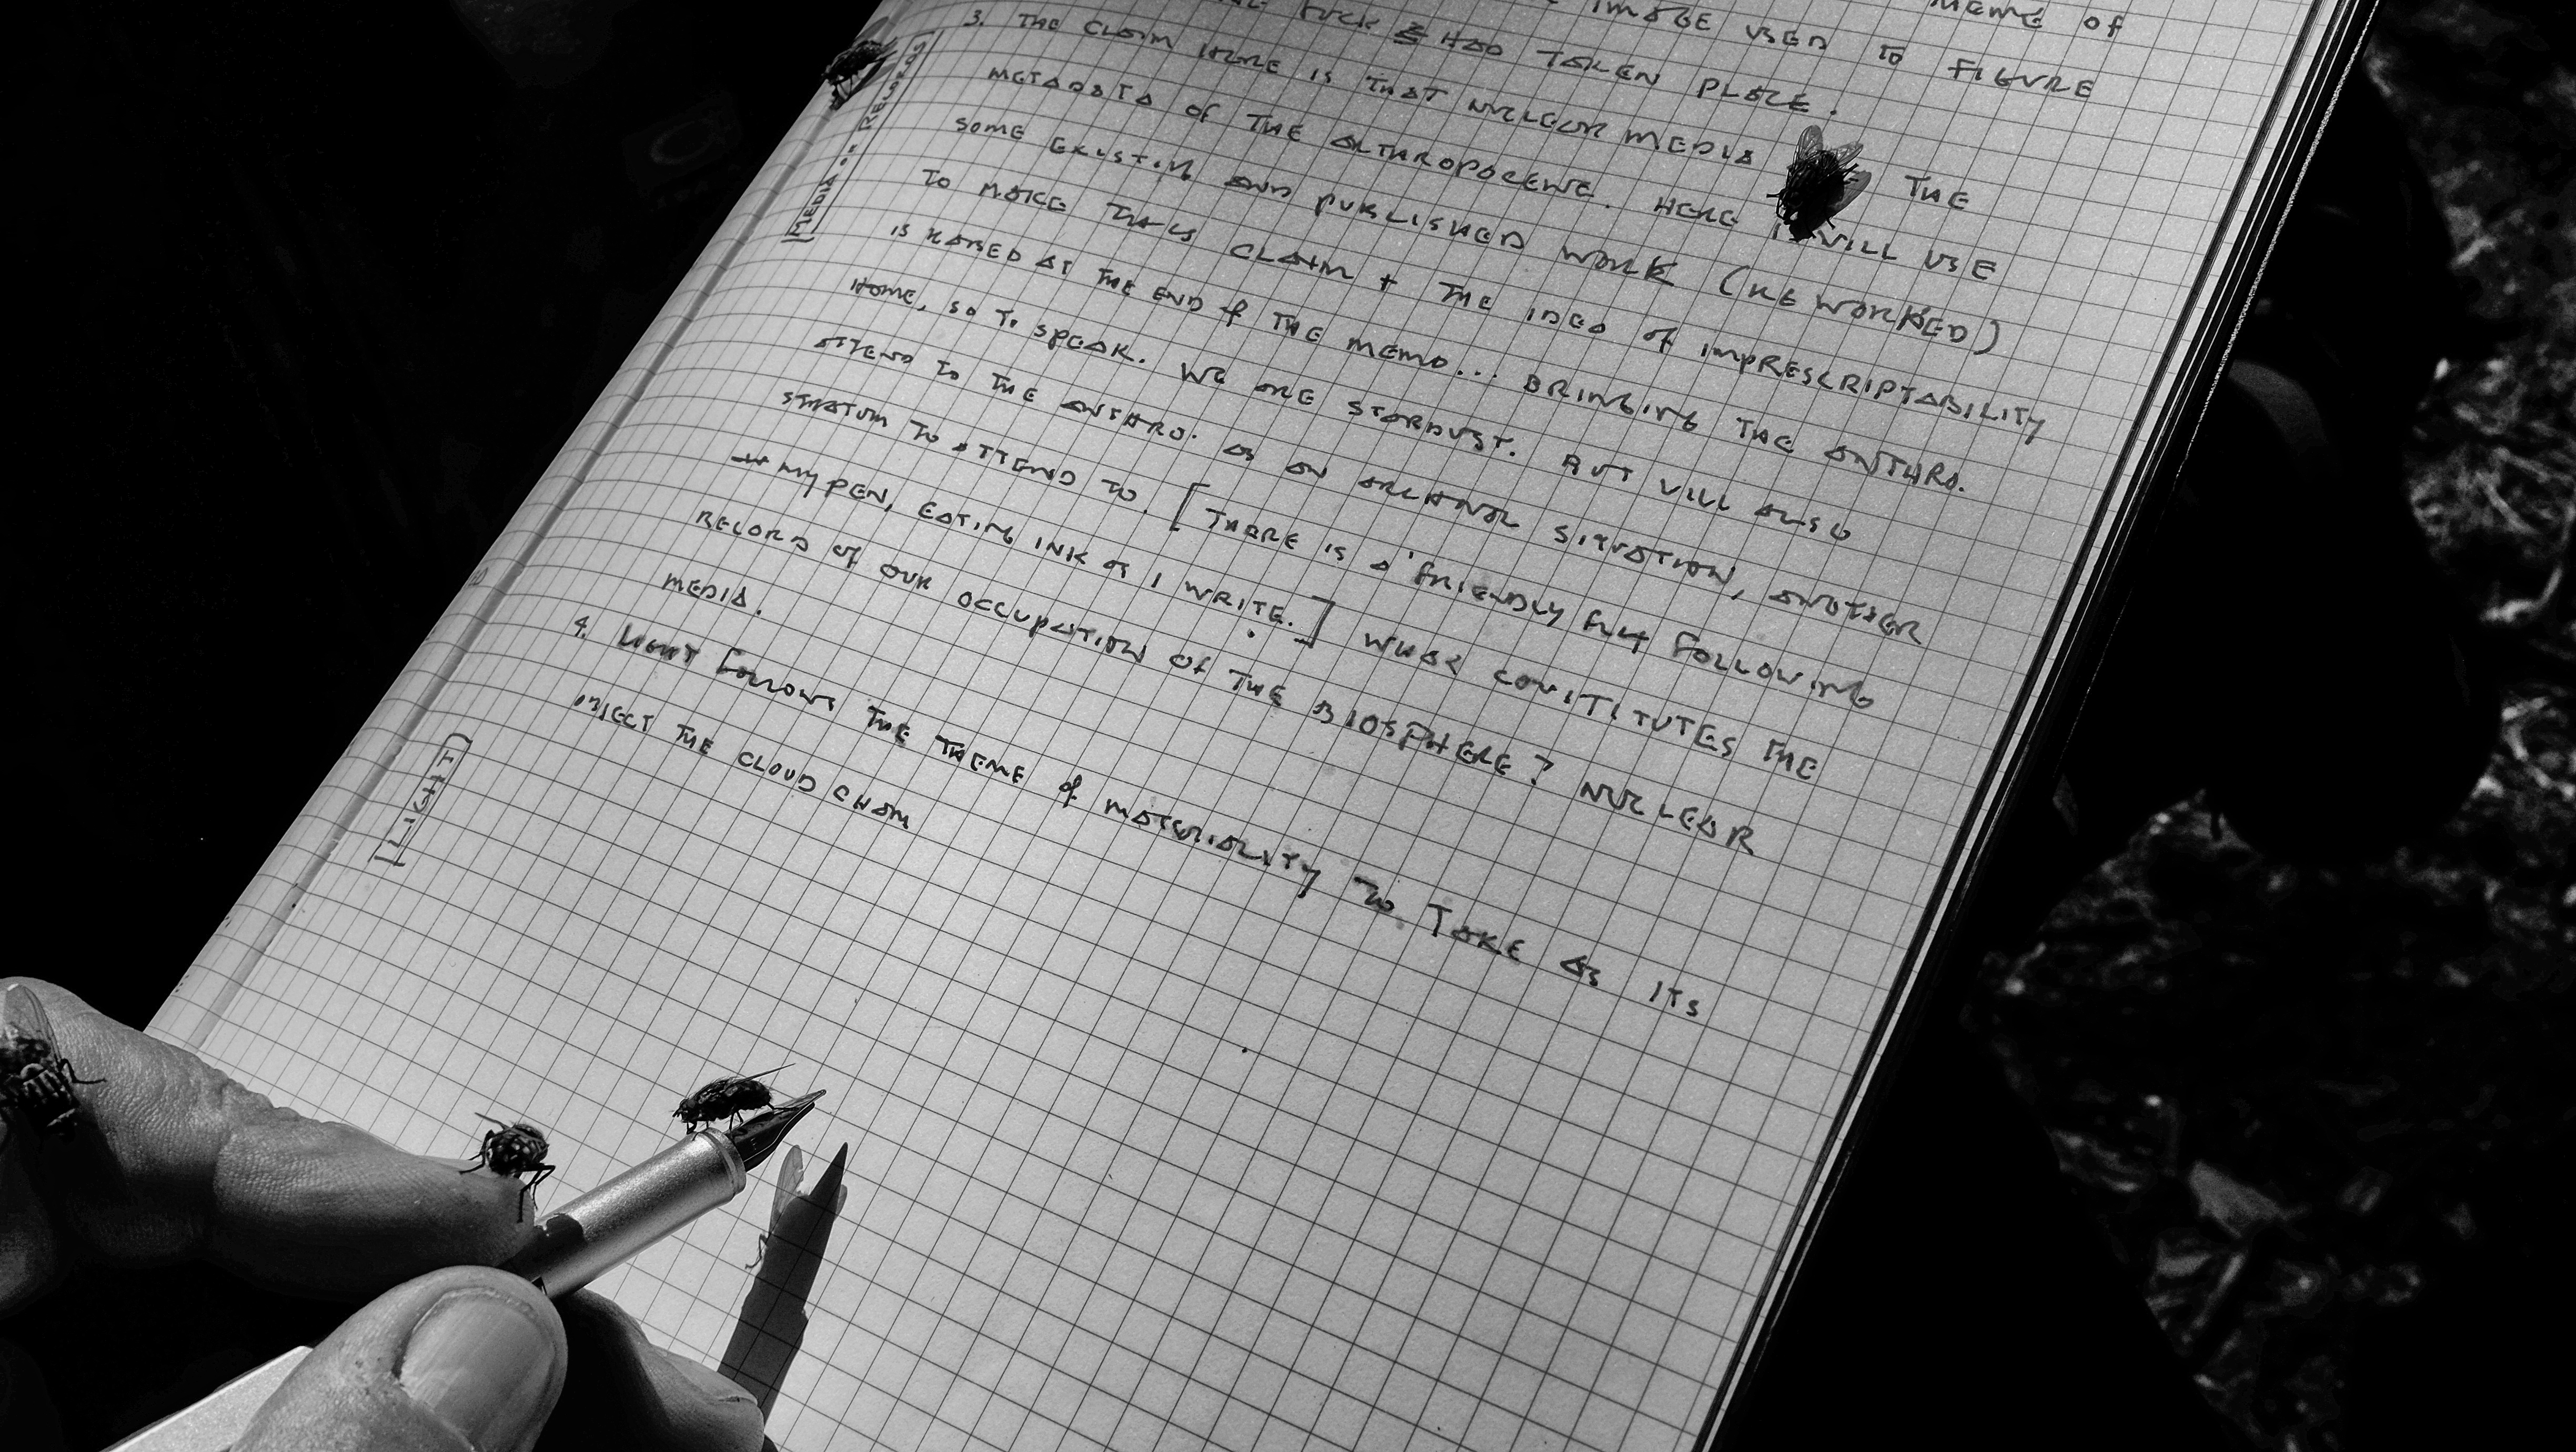 IMAGE USED TO FIGURE
HAD TAKEN PLACE.
3. THE CLAIM HERE IS THAT NUCLEAR MEDIA THE
METADATA OF THE ANTHROPOCENE. HERE I WILL USE
SOME EXISTING AND PUBLISHED WORK (REWORKED)
TO MAKE THIS CLAIM + THE IDEA OF IMPRESCRIPTABILITY
IS RAISED AT THE END OF THE MEMO... BRINGING THE ANTHRO.
HOME, SO TO SPEAK. WE ARE STARDUST. BUT WILL ALSO
ATTEND TO THE ANTHRO. AS AN ARCHIVAL SITUATION, ANOTHER
STRATUM TO ATTEND TO. [THERE IS A 'FRIENDLY FLY FOLLOWING
MY PEN, EATING INK AS I WRITE.] WHAT CONSTITUTES THE
RECORD OF OUR OCCUPATION OF THE BIOSPHERE? NUCLEAR
MEDIA.
4. LIGHT FOLLOWS THE THEME OF MATERIALITY TO TAKE AS ITS
OBJECT THE CLOUD CHAM
[MEDIA
[LIGHT]